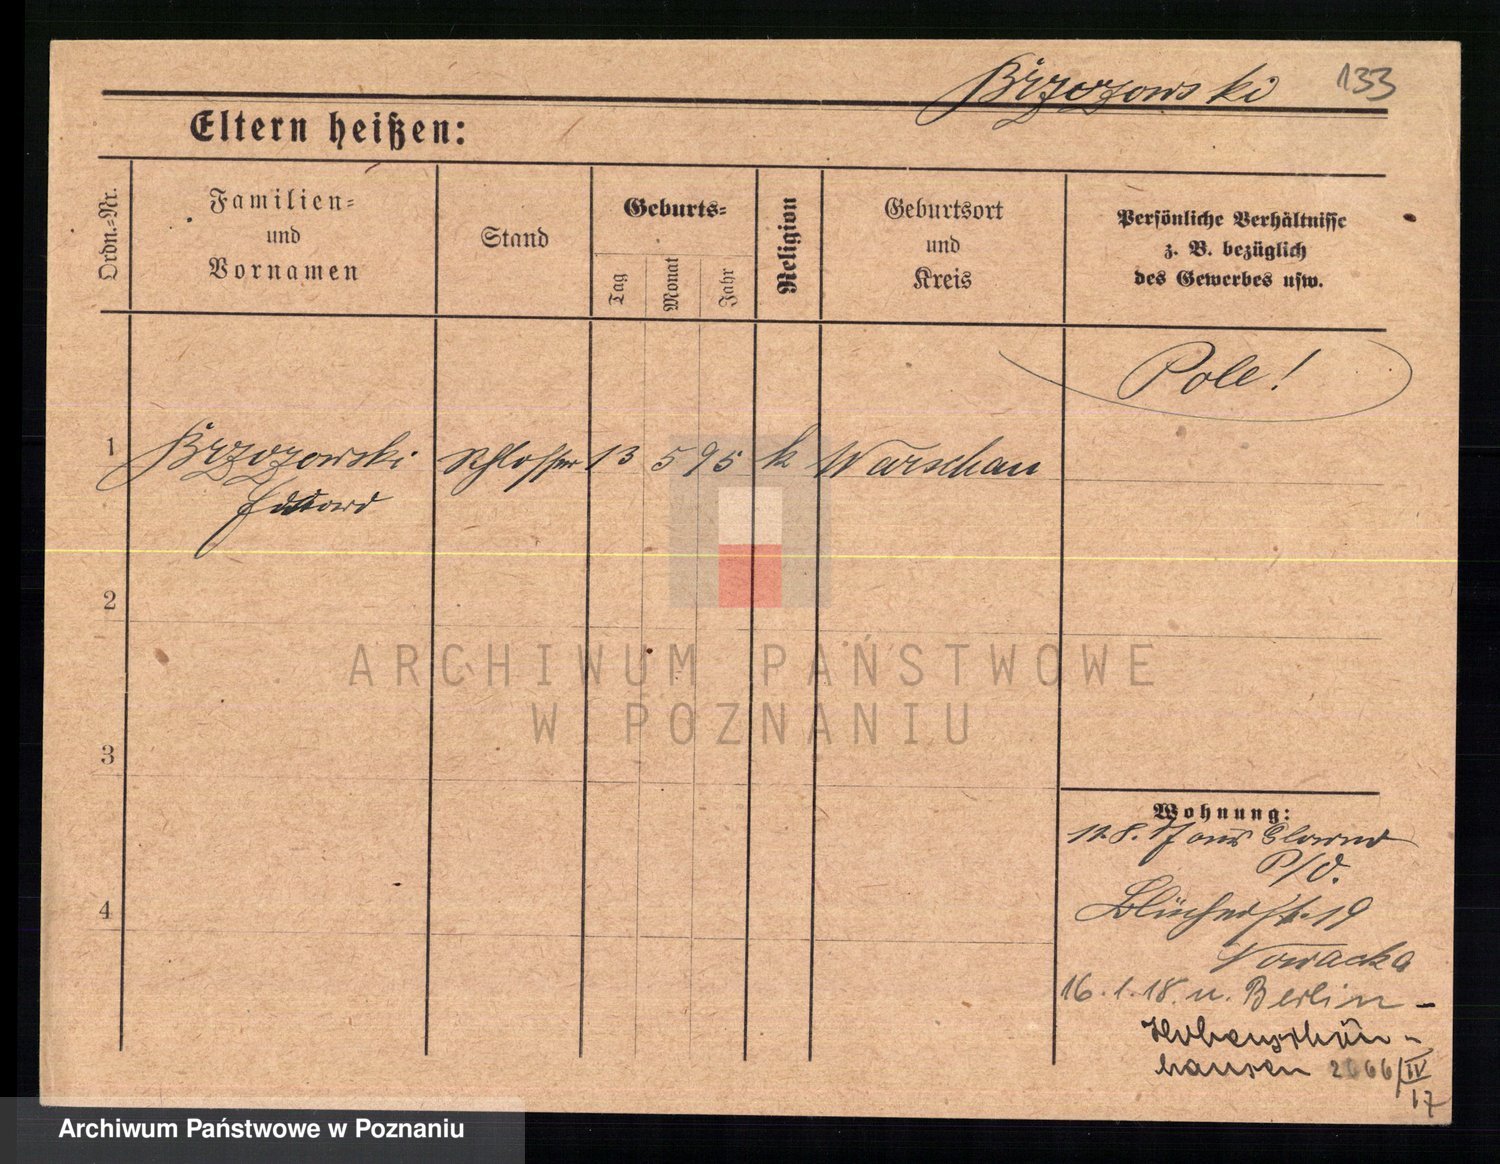 Brzozowski 133
Eltern heißen:
Ordn.-Nr.
Familien-
und
Vornamen
Stand
Geburts-
Tag
Monat
Jahr
Religion
Geburtsort
und
Kreis
Persönliche Verhältnisse
z. B. bezüglich
des Gewerbes usw.
Pole!
1 Brzozowski Schlosser 13 5 95 k Warschau
Eduard
2
ARCHIWUM PAŃSTWOWE
W POZNANIU
3
Wohnung:
12.8.
P/O.
4
Blücherstr. 19
Nowacka
16.1.18. n. Berlin-
Hohenschön-
hausen 2666/IV
17
Archiwum Państwowe w Poznaniu